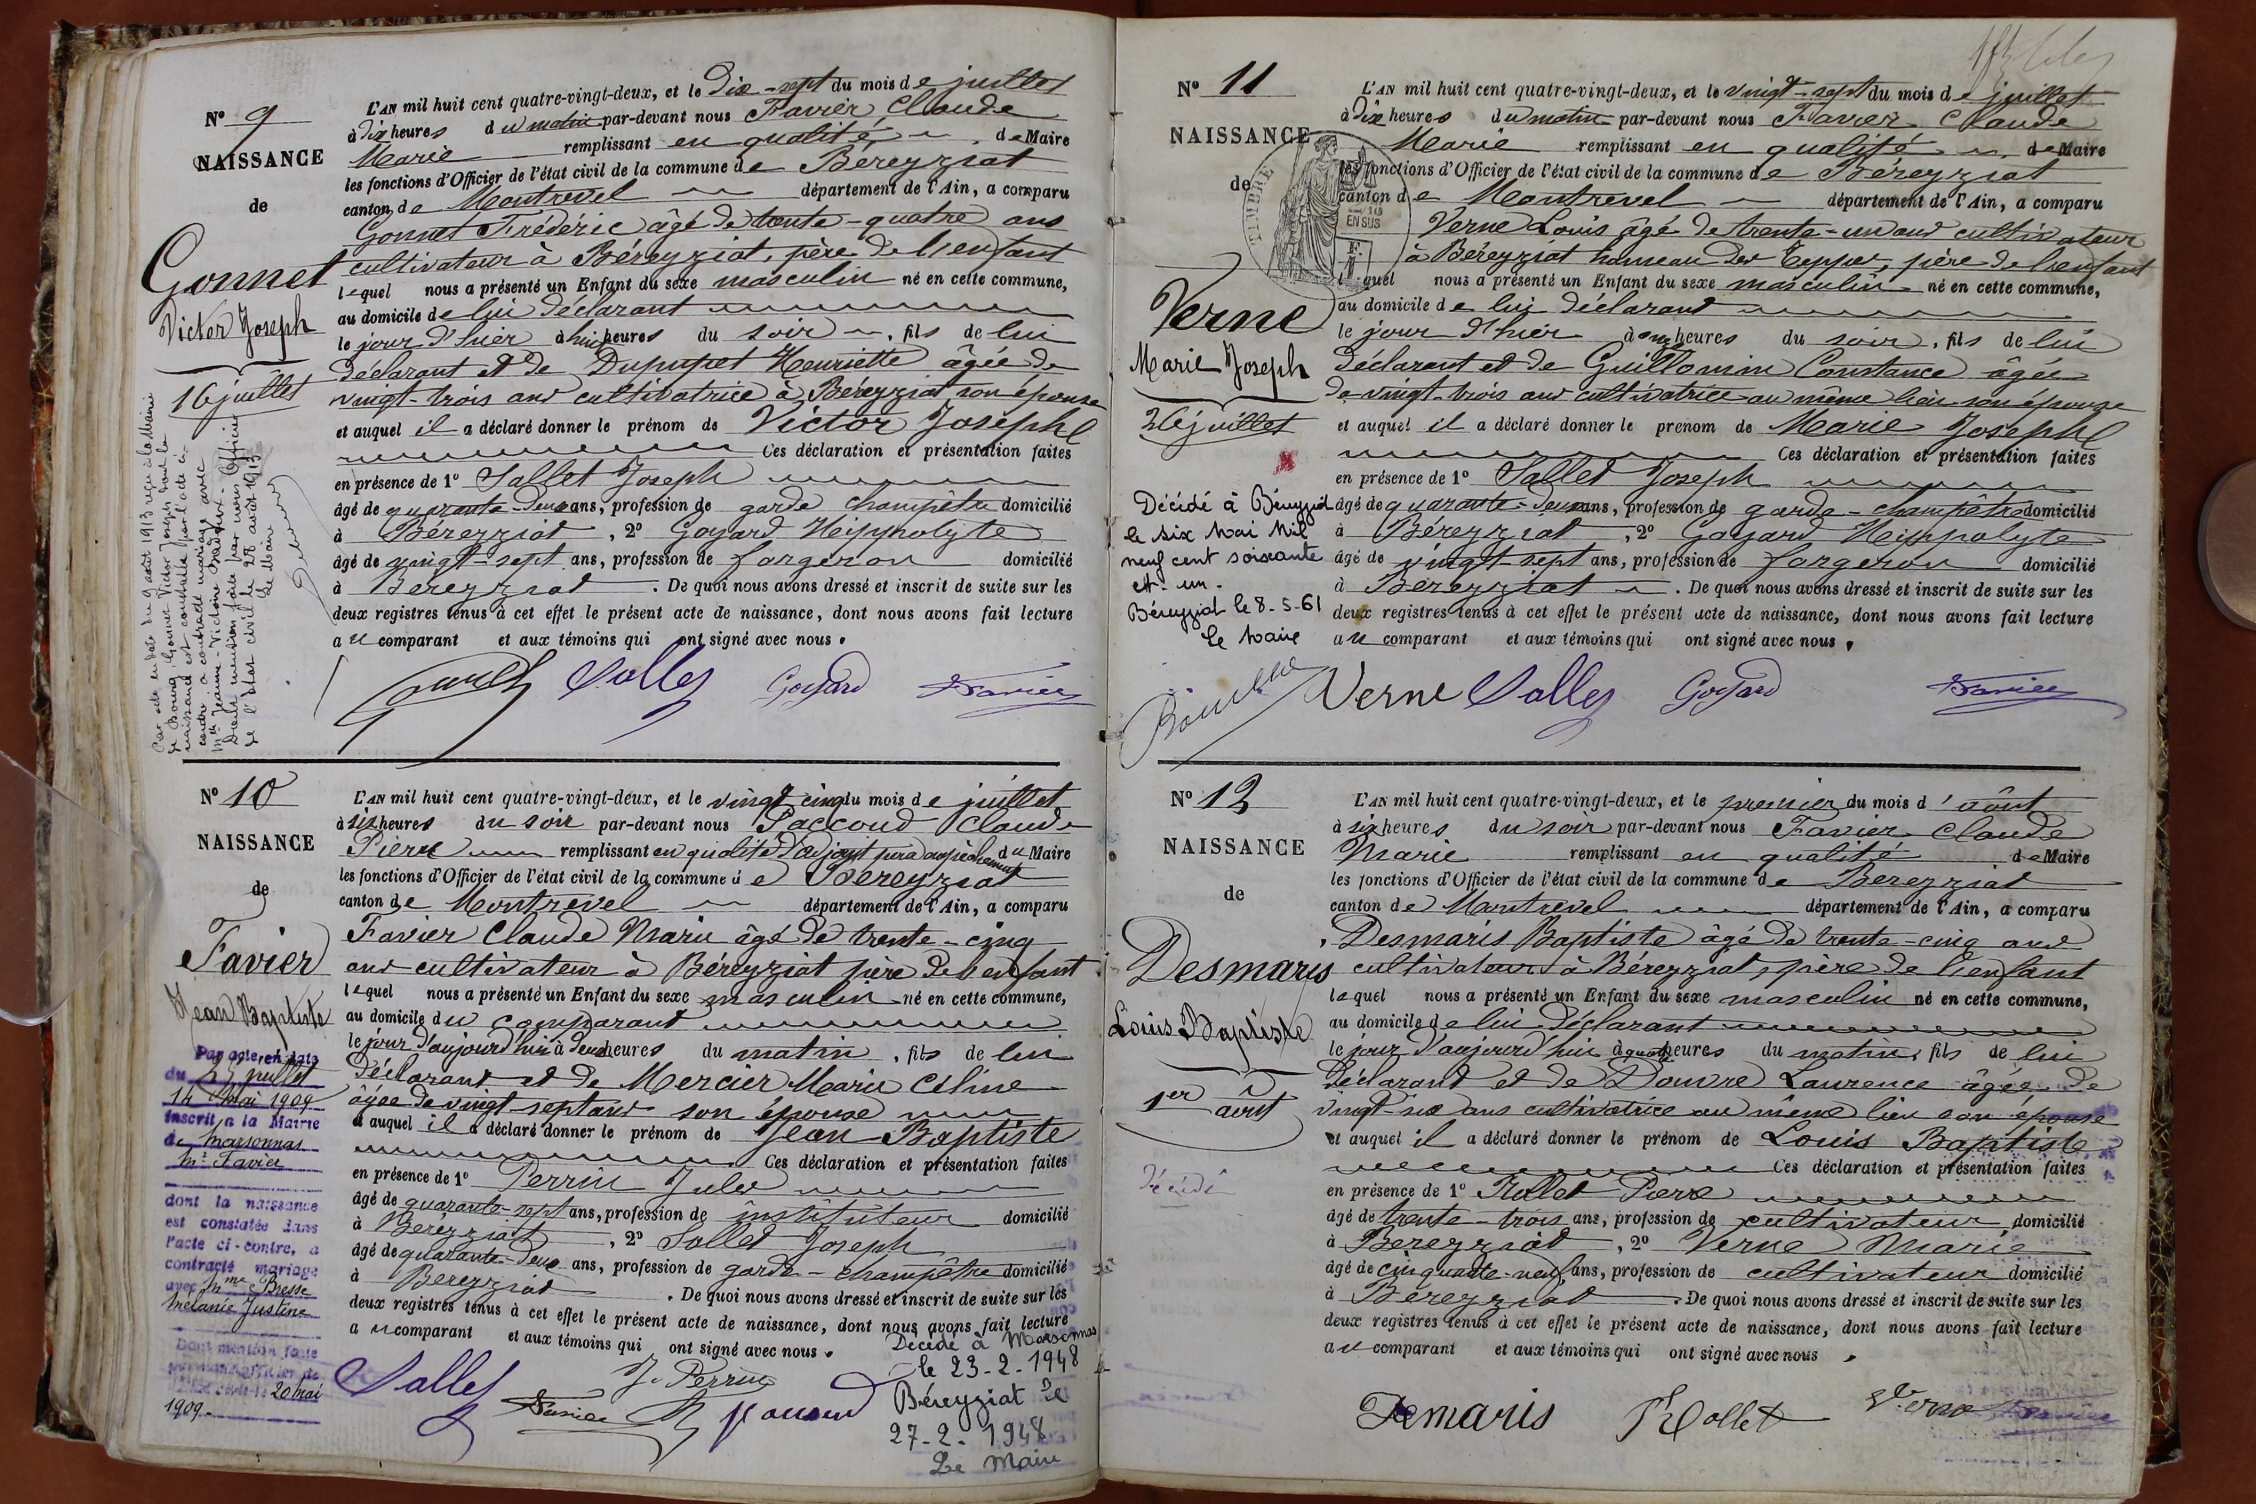 N° 9
NAISSANCE
de
Gonnet
Victor Joseph
16 juillet
Par acte en date du 9 août 1913 reçu à la Mairie
de Bourg, Gonnet Victor Joseph dont la
naissance est constatée par l'acte ci-
contre a contracté mariage avec
Mlle Jeanne-Victoire
Dont mention faite par nous Officier
de l'état civil le 28 août 1913
Le Maire
L'AN mil huit cent quatre-vingt-deux, et le Dix-sept du mois de juillet
à dix heures du matin par-devant nous Favier Claude
Marie remplissant en qualité de Maire
les fonctions d'Officier de l'état civil de la commune de Béreyziat
canton de Montrevel département de l'Ain, a comparu
Gonnet Frédéric âgé de trente-quatre ans
cultivateur à Béreyziat, père de l'enfant
lequel nous a présenté un Enfant du sexe masculin né en cette commune,
au domicile de lui déclarant
le jour d'hier à huit heures du soir, fils de lui
déclarant et de Dupupet Henriette âgée de
vingt-trois ans cultivatrice à Béreyziat son épouse
et auquel il a déclaré donner le prénom de Victor Joseph
Ces déclaration et présentation faites
en présence de 1° Sallet Joseph
âgé de quarante-deux ans, profession de garde champêtre domicilié
à Béreyziat, 2° Goyard Heippolyte
âgé de vingt-sept ans, profession de forgeron domicilié
à Béreyziat. De quoi nous avons dressé et inscrit de suite sur les
deux registres tenus à cet effet le présent acte de naissance, dont nous avons fait lecture
au comparant et aux témoins qui ont signé avec nous.
Sallet Goyard Favier
N° 10
NAISSANCE
de
Favier
Jean Baptiste
Par acte en date
du 24 juillet
14 Mai 1909
inscrit à la Mairie
de Marsonnas
Mr Favier
dont la naissance
est constatée dans
l'acte ci-contre, a
contracté mariage
avec Mme Bresse
Mélanie Justine
Dont mention faite
par nous officier de
l'état civil le 20 mai
1909.
L'AN mil huit cent quatre-vingt-deux, et le vingt cinq du mois de juillet
à six heures du soir par-devant nous Paccoud Claude
Pierre remplissant en qualité d'adjoint pour empêchement du Maire
les fonctions d'Officier de l'état civil de la commune de Béreyziat
canton de Montrevel département de l'Ain, a comparu
Favier Claude Marie âgé de trente-cinq
ans cultivateur à Béreyziat père de l'enfant
lequel nous a présenté un Enfant du sexe masculin né en cette commune,
au domicile du comparant
le jour d'aujourd'hui à deux heures du matin, fils de lui
déclarant et de Mercier Marie Céline
âgée de vingt-sept ans son épouse
et auquel il a déclaré donner le prénom de Jean-Baptiste
Ces déclaration et présentation faites
en présence de 1° Perrin Jules
âgé de quarante-sept ans, profession de instituteur domicilié
à Béreyziat, 2° Sallet Joseph
âgé de quarante-deux ans, profession de garde-champêtre domicilié
à Béreyziat. De quoi nous avons dressé et inscrit de suite sur les
deux registres tenus à cet effet le présent acte de naissance, dont nous avons fait lecture
au comparant et aux témoins qui ont signé avec nous.
Décédé à Marsonnas
le 23-2-1948
Béreyziat le
27-2-1948
Le Maire
Sallet Favier J. Perrin Paccoud
N° 11
NAISSANCE
de
TIMBRE
EN SUS
Verne
Marie Joseph
26 juillet
Décédé à Béreyziat
le six Mai Mil
neuf cent soixante
et-un.
Béreyziat le 8-5-61
Le Maire
L'AN mil huit cent quatre-vingt-deux, et le vingt-sept du mois de juillet
à dix heures du matin par-devant nous Favier Claude
Marie remplissant en qualité de Maire
les fonctions d'Officier de l'état civil de la commune de Béreyziat
canton de Montrevel département de l'Ain, a comparu
Verne Louis âgé de trente-un ans cultivateur
à Béreyziat hameau des Teppes, père de l'enfant
lequel nous a présenté un Enfant du sexe masculin né en cette commune,
au domicile de lui déclarant
le jour d'hier à onze heures du soir, fils de lui
déclarant et de Guillomin Constance âgée
de vingt-trois ans cultivatrice au même lieu son épouse
et auquel il a déclaré donner le prénom de Marie Joseph
Ces déclaration et présentation faites
en présence de 1° Sallet Joseph
âgé de quarante-deux ans, profession de garde-champêtre domicilié
à Béreyziat, 2° Goyard Heippolyte
âgé de vingt-sept ans, profession de forgeron domicilié
à Béreyziat. De quoi nous avons dressé et inscrit de suite sur les
deux registres tenus à cet effet le présent acte de naissance, dont nous avons fait lecture
au comparant et aux témoins qui ont signé avec nous.
Verne Sallet Goyard Favier
N° 12
NAISSANCE
de
Desmaris
Louis Baptiste
1er août
Décédé
L'AN mil huit cent quatre-vingt-deux, et le premier du mois d'août
à six heures du soir par-devant nous Favier Claude
Marie remplissant en qualité de Maire
les fonctions d'Officier de l'état civil de la commune de Béreyziat
canton de Montrevel département de l'Ain, a comparu
Desmaris Baptiste âgé de trente-cinq ans
cultivateur à Béreyziat, père de l'enfant
lequel nous a présenté un Enfant du sexe masculin né en cette commune,
au domicile de lui déclarant
le jour d'aujourd'hui à quatre heures du matin, fils de lui
déclarant et de Douvre Laurence âgée de
vingt-six ans cultivatrice au même lieu son épouse
et auquel il a déclaré donner le prénom de Louis Baptiste
Ces déclaration et présentation faites
en présence de 1° Rollet Pierre
âgé de trente-trois ans, profession de cultivateur domicilié
à Béreyziat, 2° Verne Marie
âgé de cinquante-neuf ans, profession de cultivateur domicilié
à Béreyziat. De quoi nous avons dressé et inscrit de suite sur les
deux registres tenus à cet effet le présent acte de naissance, dont nous avons fait lecture
au comparant et aux témoins qui ont signé avec nous.
Demaris Rollet Verne Favier